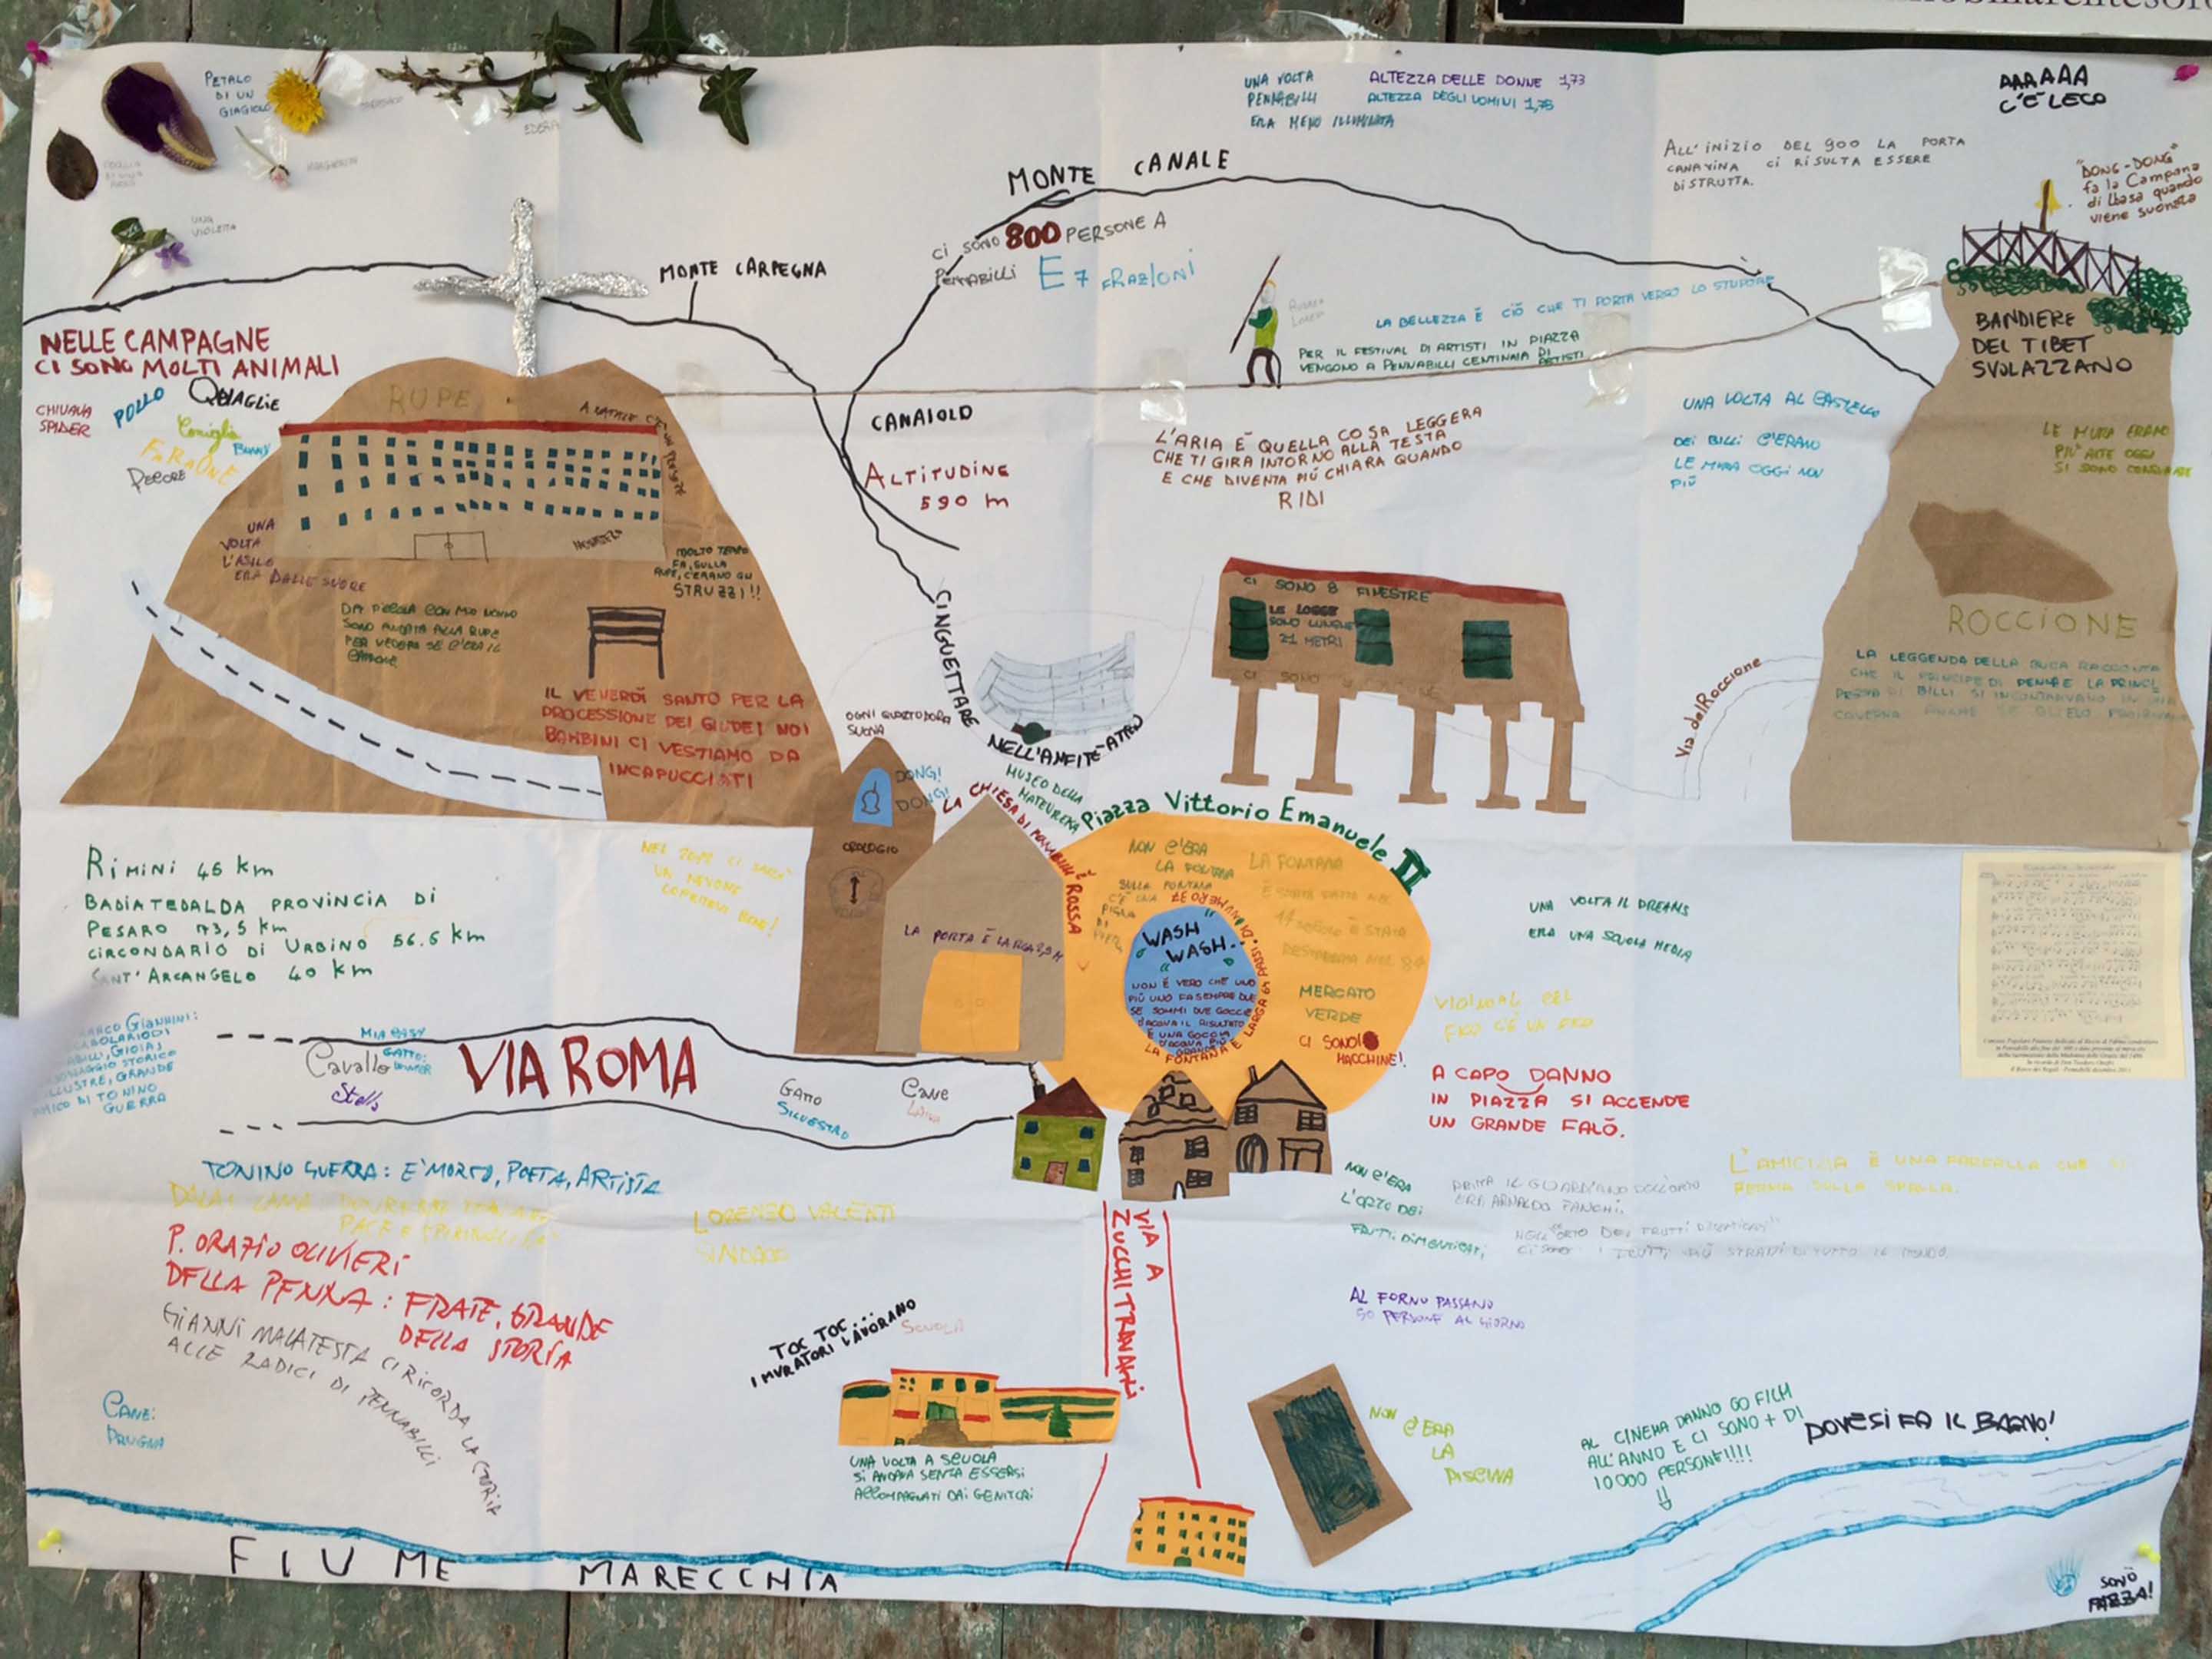 PETALO
DI UN
GIAGIOLO
EDERA
MARGHERITA
UNA
VIOLETTA
UNA VOLTA
PENNABILLI
ERA MENO ILLUMINATA
ALTEZZA DELLE DONNE 1,73
ALTEZZA DEGLI UOMINI 1,75
AAAAAA
C'È L'ECO
ALL'INIZIO DEL 900 LA PORTA
CARAVINA CI RISULTA ESSERE
DISTRUTTA.
"DONG-DONG"
fa la Campana
di Lhasa quando
viene suonata
MONTE CANALE
CI SONO 800 PERSONE A
PENNABILLI E 7 FRAZIONI
MONTE CARPEGNA
LA BELLEZZA È CIÒ CHE TI PORTA VERSO LO STUPORE
PER IL FESTIVAL DI ARTISTI IN PIAZZA
VENGONO A PENNABILLI CENTINAIA DI
ARTISTI
BANDIERE
DEL TIBET
SVOLAZZANO
NELLE CAMPAGNE
CI SONO MOLTI ANIMALI
CHIUAUA
SPIDER
POLLO
QUAGLIE
Coniglio
BUNNY
FARAONE
PECORE
RUPE
CANAIOLO
ALTITUDINE
590 m
L'ARIA È QUELLA COSA LEGGERA
CHE TI GIRA INTORNO ALLA TESTA
E CHE DIVENTA PIÚ CHIARA QUANDO
RIDI
UNA VOLTA AL CASTELLO
DEI BILLI C'ERANO
LE MURA OGGI NON
PIÙ
LE MURA ERANO
PIÙ ALTE OGGI
SI SONO CONSUMATE
UNA
VOLTA
L'ASILO
ERA DALLE SUORE
MOLTO TEMPO
FA, SULLA
RUPE, C'ERANO GLI
STRUZZI!!
DA PICCOLA CON MIO NONNO
SONO ANDATA ALLA RUPE
PER VEDERE SE C'ERA IL
IL VENERDÌ SANTO PER LA
PROCESSIONE DEI GIUDEI NOI
BAMBINI CI VESTIAMO DA
INCAPUCCIATI
CINGUETTARE
NELL'ANFITEATRO
CI SONO 8 FINESTRE
LE LOGGE
SONO LUNGHE
21 METRI
CI SONO
Via del Roccione
ROCCIONE
LA LEGGENDA DELLA BUCA RACCONTA
CHE IL PRINCIPE DI PENNA E LA PRINCI
PESSA DI BILLI SI INCONTRAVANO IN UNA
CAVERNA
OGNI QUARTO D'ORA
SUONA
DONG!
DONG!
OROLOGIO
LA CHIESA DI PENNABILLI È ROSSA
MUSEO DELLA
MATEUREKA
Piazza Vittorio Emanuele II
LA PORTA È LARGA 2,9 M
NON C'ERA
LA FONTANA
SULLA FONTANA
C'È UNA
PIGNA
DI
PIETRA
LA FONTANA
È STATA FATTA NEL
RESTAURATA NEL
WASH
WASH..
NON È VERO CHE UNO
PIÙ UNO FA SEMPRE DUE
SE SOMMI DUE GOCCE
D'ACQUA IL RISULTATO
È UNA GOCCIA
D'ACQUA PIÙ
GRANDE
LA FONTANA È LARGA 64 PASSI. DI NUMERO 37
MERCATO
VERDE
CI SONO
MACCHINE!
NEL 2012 CI SARÀ
UN NEVONE
COPRITEVI BENE!
RIMINI 46 km
BADIATEDALDA PROVINCIA DI
PESARO 73,5 km
CIRCONDARIO DI URBINO 56.6 km
SANT'ARCANGELO 40 km
UNA VOLTA IL DREAMS
ERA UNA SCUOLA MEDIA
MARCO GIANNINI:
TONINO
GUERRA
Cavallo
Stella
MIA BABY
GATTO:
VIA ROMA
GATTO
SILVESTRO
CANE
A CAPO DANNO
IN PIAZZA SI ACCENDE
UN GRANDE FALÒ.
TONINO GUERRA: E' MORTO, POETA, ARTISTA
LORENZO VALENTI
SINDACO
P. ORAZIO OLIVIERI
DELLA PENNA: FRATE, GRANDE
DELLA STORIA
GIANNI MALATESTA CI RICORDA LA STORIA
ALLE RADICI DI PENNABILLI
NON C'ERA
L'ORTO DEI
FRUTTI DIMENTICATI
PRIMA IL GUARDIANO DELL'ORTO
ERA ARNALDO
NELL'"ORTO DEI FRUTTI DIMENTICATI"
CI SONO I FRUTTI PIÙ STRANI DI TUTTO IL MONDO.
L'AMICIZIA È UNA FARFALLA CHE SI
FERMA SULLA SPALLA.
VIA A
ZUCCHI TRAVAGLI
AL FORNO PASSANO
50 PERSONE AL GIORNO
TOC TOC...
I MURATORI LAVORANO
SCUOLA
UNA VOLTA A SCUOLA
SI ANDAVA SENZA ESSERSI
ACCOMPAGNATI DAI GENITORI
CANE:
PRUGNA
NON
C'ERA
LA
PISCINA
AL CINEMA DANNO 60 FILM
ALL'ANNO E CI SONO + DI
10000 PERSONE!!!!
DOVE SI FA IL BAGNO!
FIUME MARECCHIA
SONO
PAZZA!